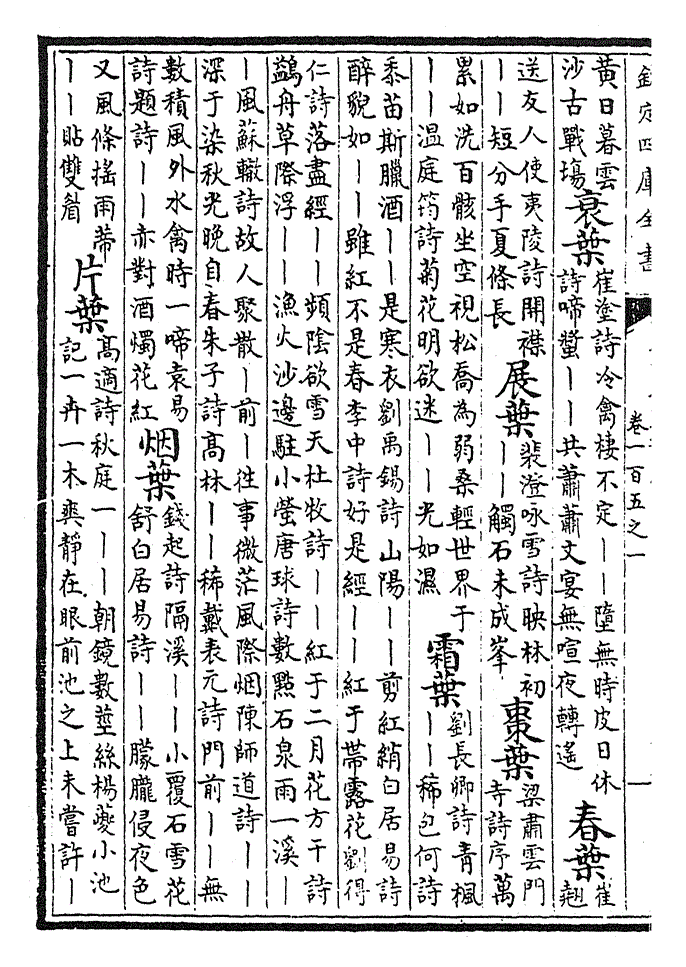 欽定四庫全書
卷一百五之一
黃日暮雲
沙古戰場
衰葉
崔塗詩冷禽棲不定——墮無時皮日休
詩啼螿——共蕭蕭文宴無喧夜轉遙
春葉
崔
翹
送友人使夷陵詩開襟
——短分手夏條長
展葉
裴澄咏雪詩映林初
——觸石未成峯
棗葉
梁肅雲門
寺詩序萬
累如洗百骸坐空視松喬為弱桑輕世界于
——温庭筠詩菊花明欲迷——光如濕
霜葉
劉長卿詩青楓
——稀包何詩
黍苗斯臘酒——是寒衣劉禹錫詩山陽——剪紅綃白居易詩
醉貌如——雖紅不是春李中詩好是經——紅于帶露花劉得
仁詩落盡經——頻陰欲雪天杜牧詩——紅于二月花方干詩
鷁舟草際浮——漁火沙邊駐小螢唐球詩數點石泉雨一溪—
—風蘇轍詩故人聚散—前—往事微茫風際烟陳師道詩——
深于染秋光晚自春朱子詩高林——稀戴表元詩門前——無
數積風外水禽時一啼袁易
詩題詩——亦對酒燭花紅
烟葉
錢起詩隔溪——小覆石雪花
舒白居易詩——朦朧侵夜色
又風條揺雨蒂
——貼雙眉
片葉
高適詩秋庭一——朝鏡數莖絲楊夔小池
記一卉一木爽靜在眼前池之上未嘗許—
一